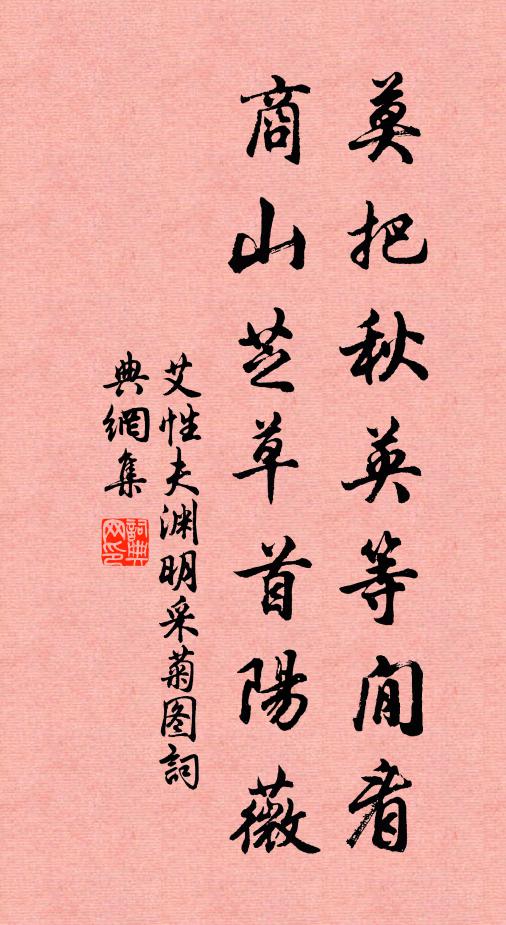 莫把秋英等閒看
商山芝草首陽薇
艾性夫渊明采菊图詞
典網集
詞典网印